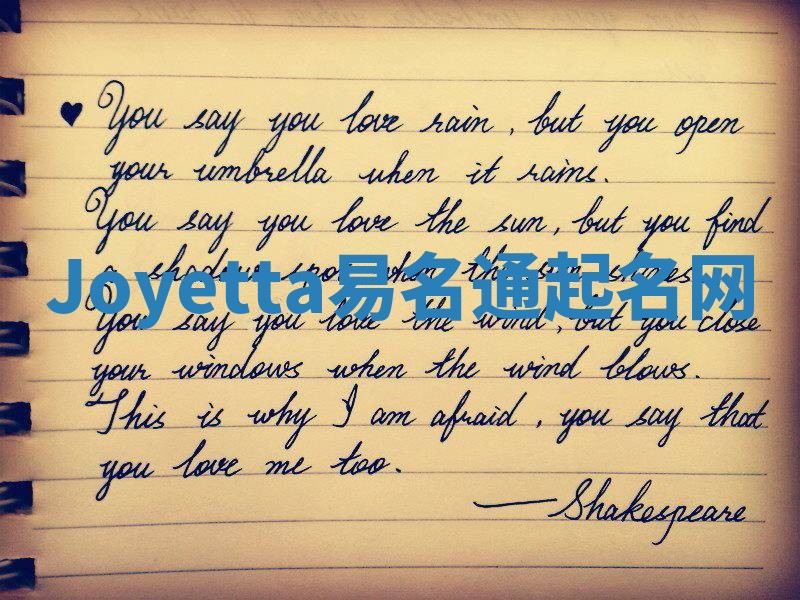 You say you love rain, but you open
your umbrella when it rains.
You say you love the sun, but you find
a shadow spot when the sun shines.
Joyetta易名通起名网
You say you love the wind, but you close
your windows when the wind blows.
This is why I am afraid, you say that
you love me too.
—Shakespeare